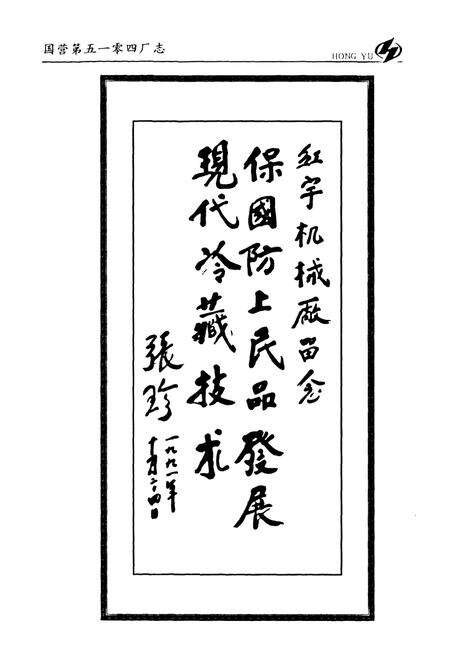 国营第五一零四厂志
HONG YU
红宇机械厰留念
保國防上民品發展
現代冷藏技术
張珍
一九九一年
十月二四日